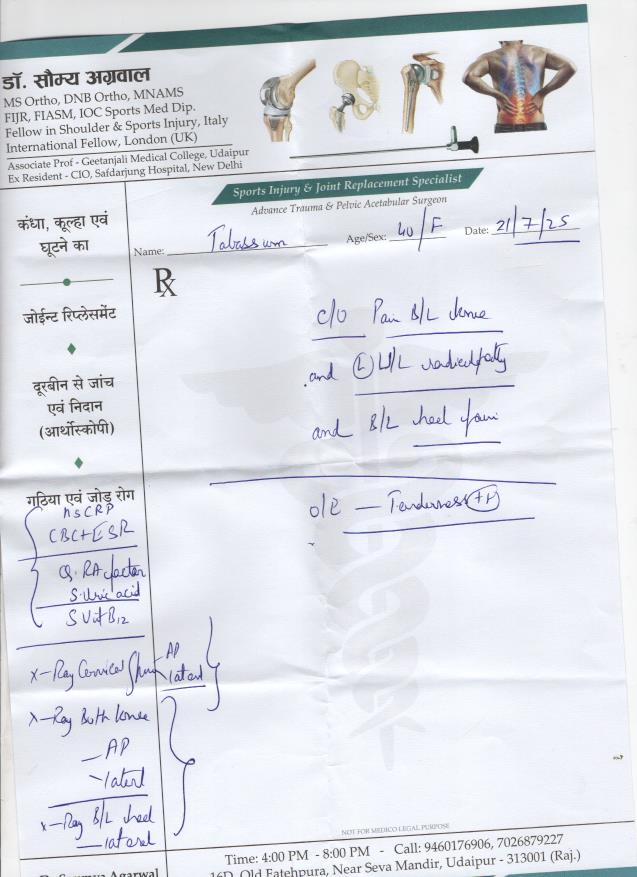 डॉ. सौम्य अग्रवाल
MS Ortho, DNB Ortho, MNAMS
FIJR, FIASM, IOC Sports Med Dip.
Fellow in Shoulder & Sports Injury, Italy
International Fellow, London (UK)
Associate Prof - Geetanjali Medical College, Udaipur
Ex Resident - CIO, Safdarjung Hospital, New Delhi
Sports Injury & Joint Replacement Specialist
Advance Trauma & Pelvic Acetabular Surgeon
Name: Tabassum Age/Sex: 40/F Date: 21/7/25
Rx
कंधा, कूल्हा एवं
घूटने का
जोईन्ट रिप्लेसमेंट
दूरबीन से जांच
एवं निदान
(आर्थोस्कोपी)
गठिया एवं जोड़ रोग
C/O Pain B/L knee
and (L) radiculopathy
and B/L heel pain
O/E — Tenderness
hsCRP
CBC+ESR
Q. RA factor
S. Uric acid
S Vit B12
X-Ray Cervical Spine - AP
lateral
X-Ray Both knee
- AP
- lateral
X-Ray B/L heel
- lateral
NOT FOR MEDICO LEGAL PURPOSE
Time: 4:00 PM - 8:00 PM - Call: 9460176906, 7026879227
16D, Old Fatehpura, Near Seva Mandir, Udaipur - 313001 (Raj.)
Agarwal